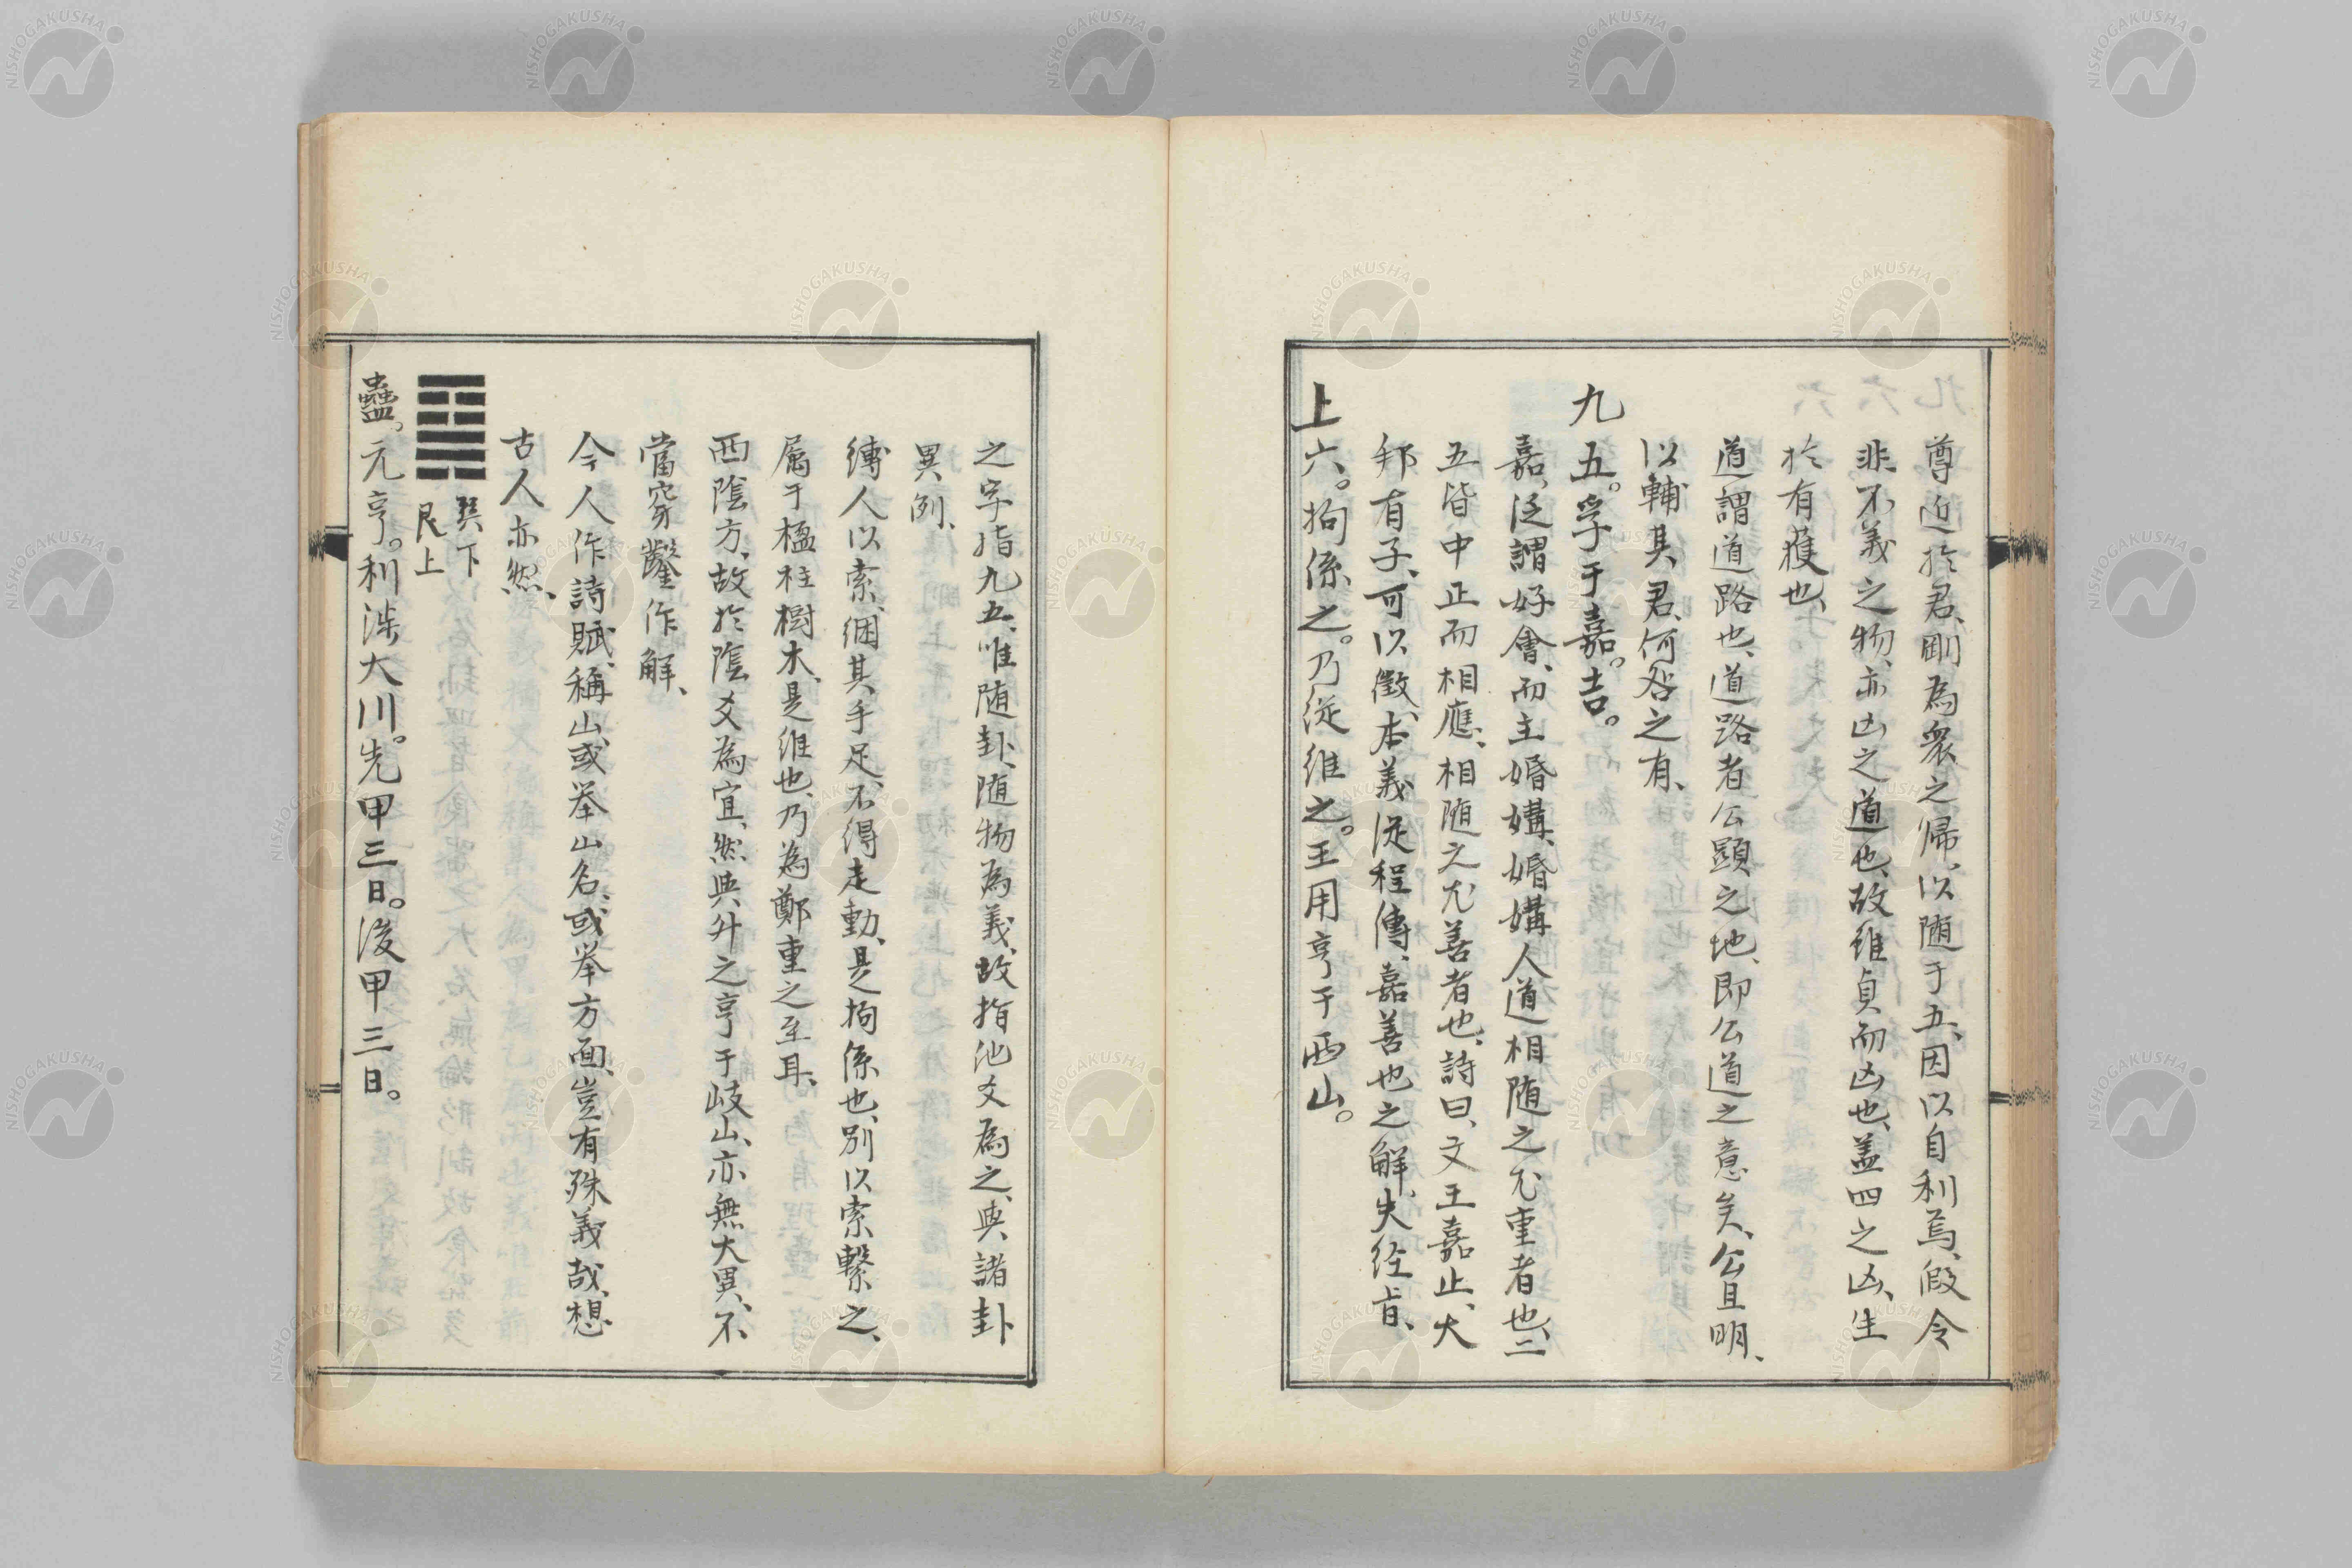 尊近於君、剛為衆之歸、以随于五、因以自利焉、假令
非不義之物、亦凶之道也、故雖貞而凶也、盖四之凶、生
於有獲也、
道謂道路也、道路者公顕之地、即公道之意矣、公且明、
以輔其君、何咎之有、
九五。孚于嘉。吉。
嘉、泛謂好會、而主婚媾、婚媾人道相随之尤重者也、二
五皆中正而相應、相随之尤善者也、詩曰、文王嘉止、大
邦有子、可以徵、本義従程傳、嘉善也之解、失経旨、
上六。拘係之。乃従維之。王用亨于西山。
之字指九五、唯随卦、随物為義、故指池爻為之、與諸卦
異例、
縛人以索、綑其手足、不得走動、是拘係也、別以索繋之、
属于楹柱樹木、是維也、乃為鄭重之至耳、
西陰方、故於陰爻為宜、然與升之亨于岐山、亦無大異、不
當穷鑿作解、
今人作詩賦、稱山、或举山名、或举方面、豈有殊義哉、想
古人亦然、
巽下
艮上
蠱。元亨。利渉大川。先甲三日。後甲三日。
NISHOGAKUSHA